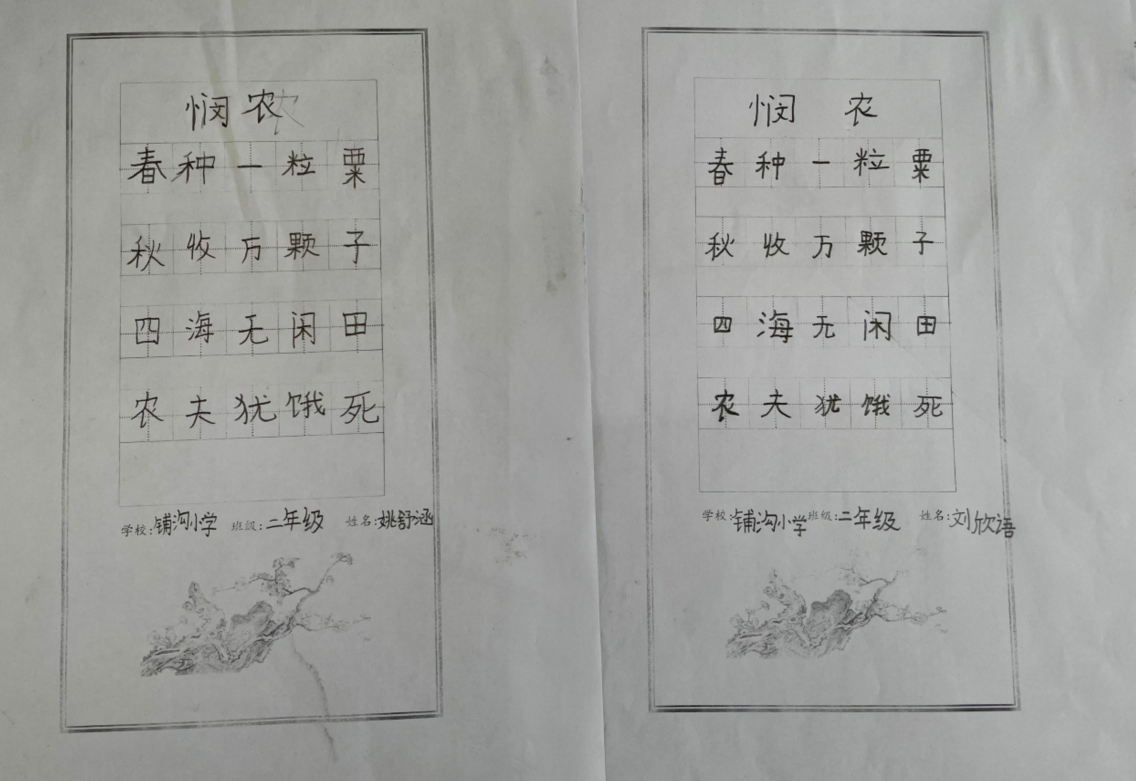 悯农
春种一粒粟
秋收万颗子
四海无闲田
农夫犹饿死
学校:铺沟小学 班级:二年级 姓名:姚舒涵
悯 农
春种一粒粟
秋收万颗子
四海无闲田
农夫犹饿死
学校:铺沟小学 班级:二年级 姓名:刘欣语